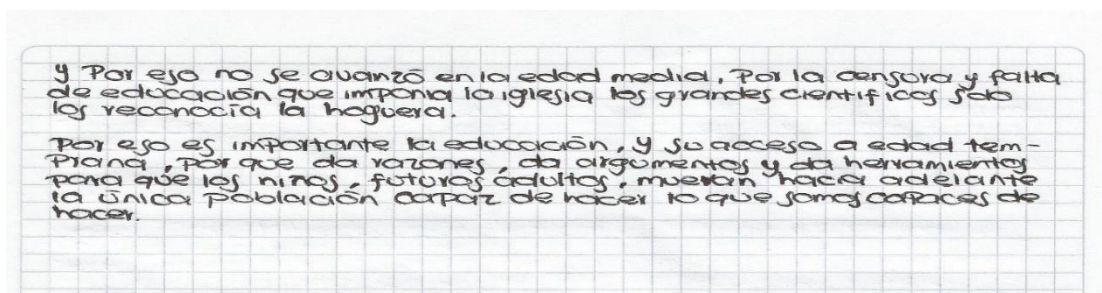 y Por eso no se avanzó en la edad media, Por la censura y falta
de educación que imponia la iglesia los grandes cientificos solo
los reconocía la hoguera.
Por eso es importante la educación, y su acceso a edad tem-
prana, por que da razones, da argumentos y da herramientos
para que los niños, futuros adultos, muevan hacia adelante
la única población capaz de hacer lo que somos capaces de
hacer.